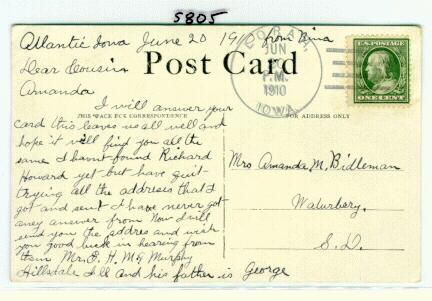 5805
Atlantic Iowa June 20 1910 from Nina
Dear Cousin
Amanda
Post Card
CORAH,
JUN
P.M.
1910
IOWA.
U.S. POSTAGE
ONE CENT
THIS SPACE FOR CORRESPONDENCE
FOR ADDRESS ONLY
I will answer your
card this leaves us all well and
hope it will find you all the
same I havnt found Richard
Howard yet but have quit
trying all the address that I
got and sent I have never got
aney answer from Now I will
send you the addres and wish
you good luck in hearing from
them Mr. H. Mc Murphy
Hillsdale Ill and his father is George
Mrs Amanda M. Bidleman
Waturbery.
S.D.